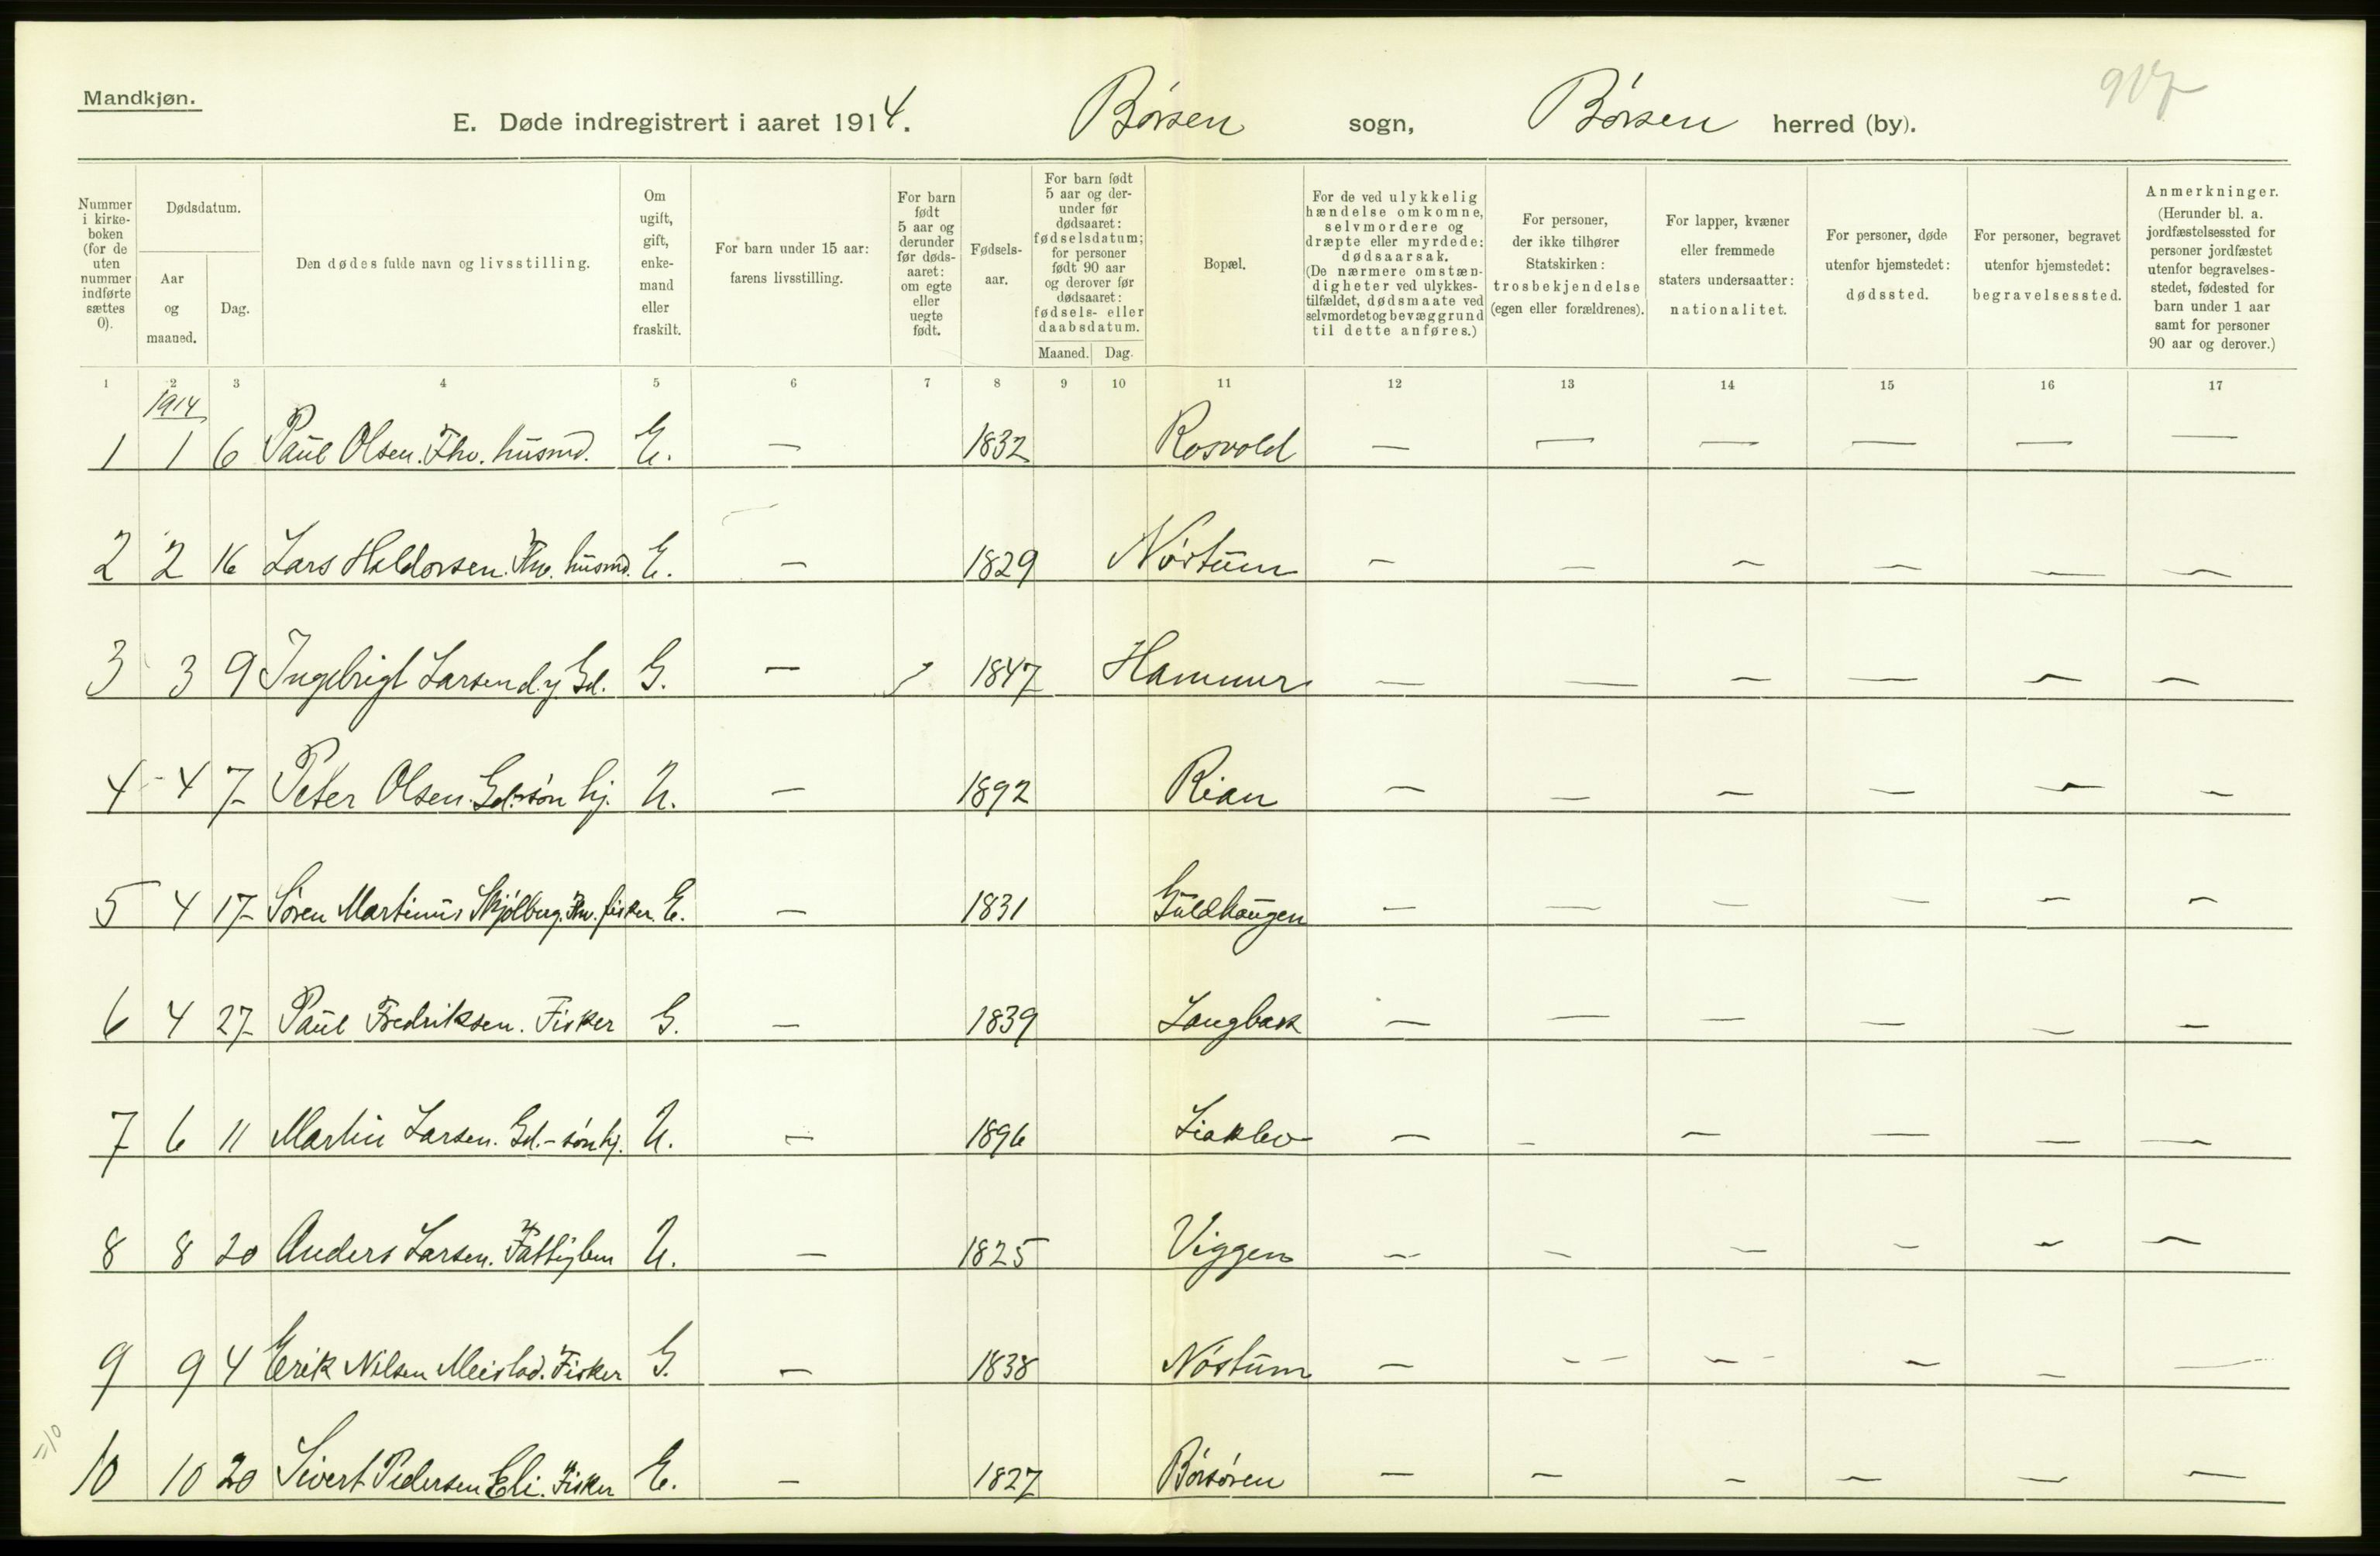 Mandkjøn.
917
E. Døde indregistrert i aaret 1914. Børsen sogn, Børsen herred (by).
Nummer i kirkeboken (for de uten nummer indførte sættes 0).
Dødsdatum.
Aar og maaned.
Dag.
Den dødes fulde navn og livsstilling.
Om ugift, gift, enkemand eller fraskilt.
For barn under 15 aar: farens livsstilling.
For barn født 5 aar og derunder før dødsaaret: om egte eller uegte født.
Fødselsaar.
For barn født 5 aar og derunder før dødsaaret: fødselsdatum; for personer født 90 aar og derover før dødsaaret: fødsels- eller daabsdatum.
Maaned. Dag.
Bopæl.
For de ved ulykkelig hændelse omkomne, selvmordere og dræpte eller myrdede: dødsaarsak. (De nærmere omstændigheter ved ulykkestilfældet, dødsmaate ved selvmordet og bevæggrund til dette anføres.)
For personer, der ikke tilhører Statskirken: trosbekjendelse (egen eller forældrenes).
For lapper, kvæner eller fremmede staters undersaatter: nationalitet.
For personer, døde utenfor hjemstedet: dødssted.
For personer, begravet utenfor hjemstedet: begravelsessted.
Anmerkninger. (Herunder bl. a. jordfæstelsessted for personer jordfæstet utenfor begravelsesstedet, fødested for barn under 1 aar samt for personer 90 aar og derover.)
1 2 3 4 5 6 7 8 9 10 11 12 13 14 15 16 17
1914
1 1 6 Paul Olsen. Fhv. husmd. E. — 1832 Rosvold — — — — — —
2 2 16 Lars Haldorsen. Fhv. husmd. E. — 1829 Nøstum — — — — — —
3 3 9 Ingebrigt Larsen d.y. Gd. G. — 1847 Hammer — — — — — —
4 4 7 Peter Olsen. Gd.-søn hj. U. — 1892 Rian — — — — — —
5 4 17 Søren Martinus Skjølberg. Fhv. fisker. E. — 1831 Guldhaugen — — — — — —
6 4 27 Paul Fredriksen. Fisker G. — 1839 Langbak — — — — — —
7 6 11 Martin Larsen. Gd.-søn hj. U. — 1896 Liaklev — — — — — —
8 8 20 Anders Larsen. Fattiglem U. — 1825 Viggen — — — — — —
9 9 4 Erik Nilsen Meistad. Fisker G. — 1838 Nøstum — — — — — —
=10
10 10 20 Sivert Pedersen Eli. Fisker E. — 1827 Børsøren — — — — — —